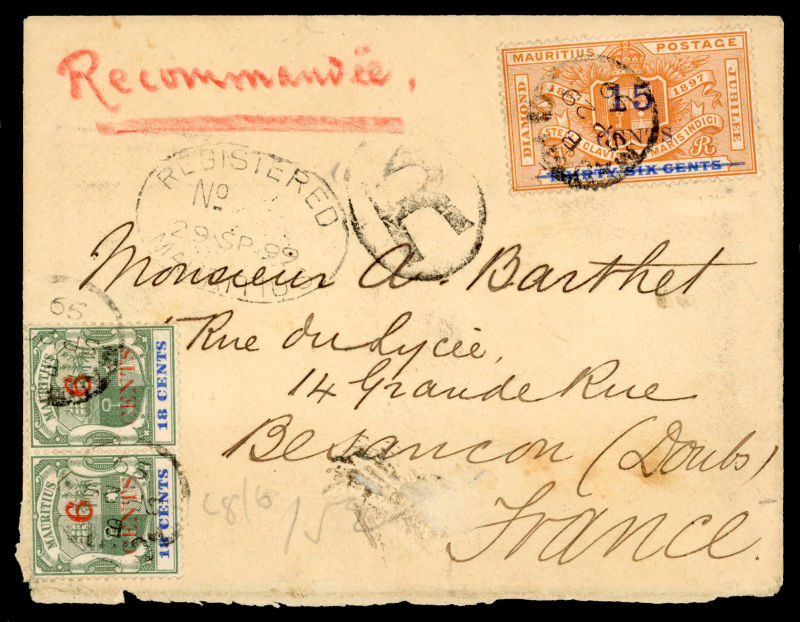 Recommandée.
MAURITIUS POSTAGE
DIAMOND
1897
JUBILEE
15
CENTS
STELLA CLAVISQUE MARIS INDICI
THIRTY SIX CENTS
REGISTERED
No
29 SP 99
MAURITIUS
R
Monsieur A. Barthet
Rue du Lycée,
14 Grande Rue
Besancon (Doubs)
France.
MAURITIUS
6
CENTS
18 CENTS
MAURITIUS
6
CENTS
18 CENTS